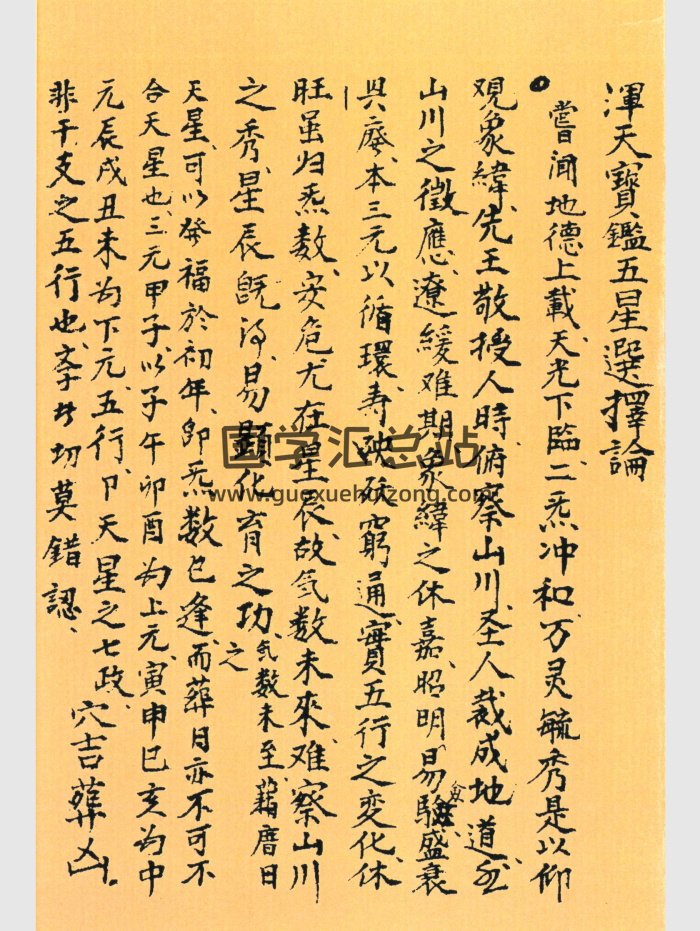 渾天寶鑑五星選擇論
嘗闻地德上載、天光下臨、二炁冲和、万灵毓秀、是以仰
观象緯、先王敬授人時、俯察山川、圣人裁成地道、然
山川之徵應、遼緩难期、象緯之休嘉、昭明易驗、盛衰
兴廢、本三元以循環、寿殀穷通、實五行之变化、休
旺虽归炁数、安危尤在星辰、故气数未來、难察山川
之秀、星辰既得、易顯化育之功、之气数未至、藉曆日
天星、可以發福於初年、即炁数已逢、而葬日亦不可不
合天星也、三元甲子、以子午卯酉为上元、寅申巳亥为中
元、辰戌丑未为下元、五行、即天星之七政、
非干支之五行也、学者切莫錯認、
穴吉葬凶。
国学汇总站
www.guoxuehuizong.com